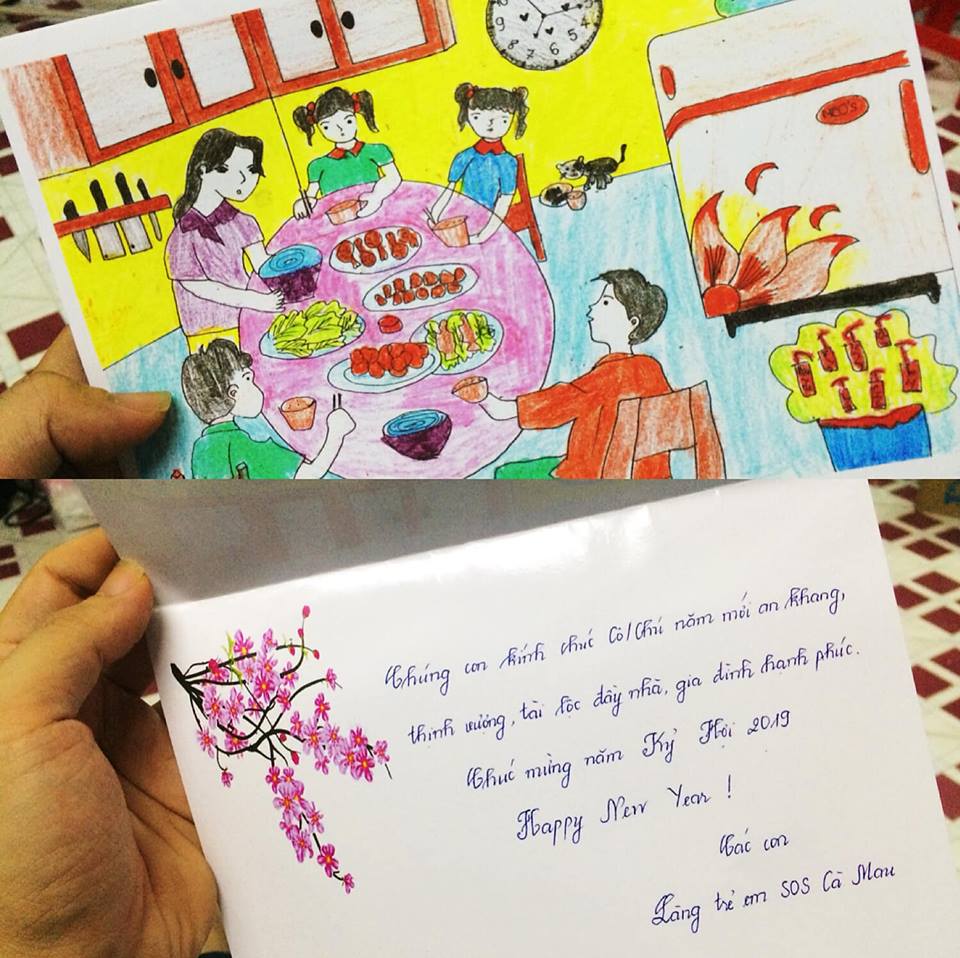 Chúng con kính chúc Cô/Chú năm mới an khang,
thịnh vượng, tài lộc đầy nhà, gia đình hạnh phúc.
Chúc mừng năm Kỷ Hợi 2019
Happy New Year !
Các con
Làng trẻ em SOS Cà Mau